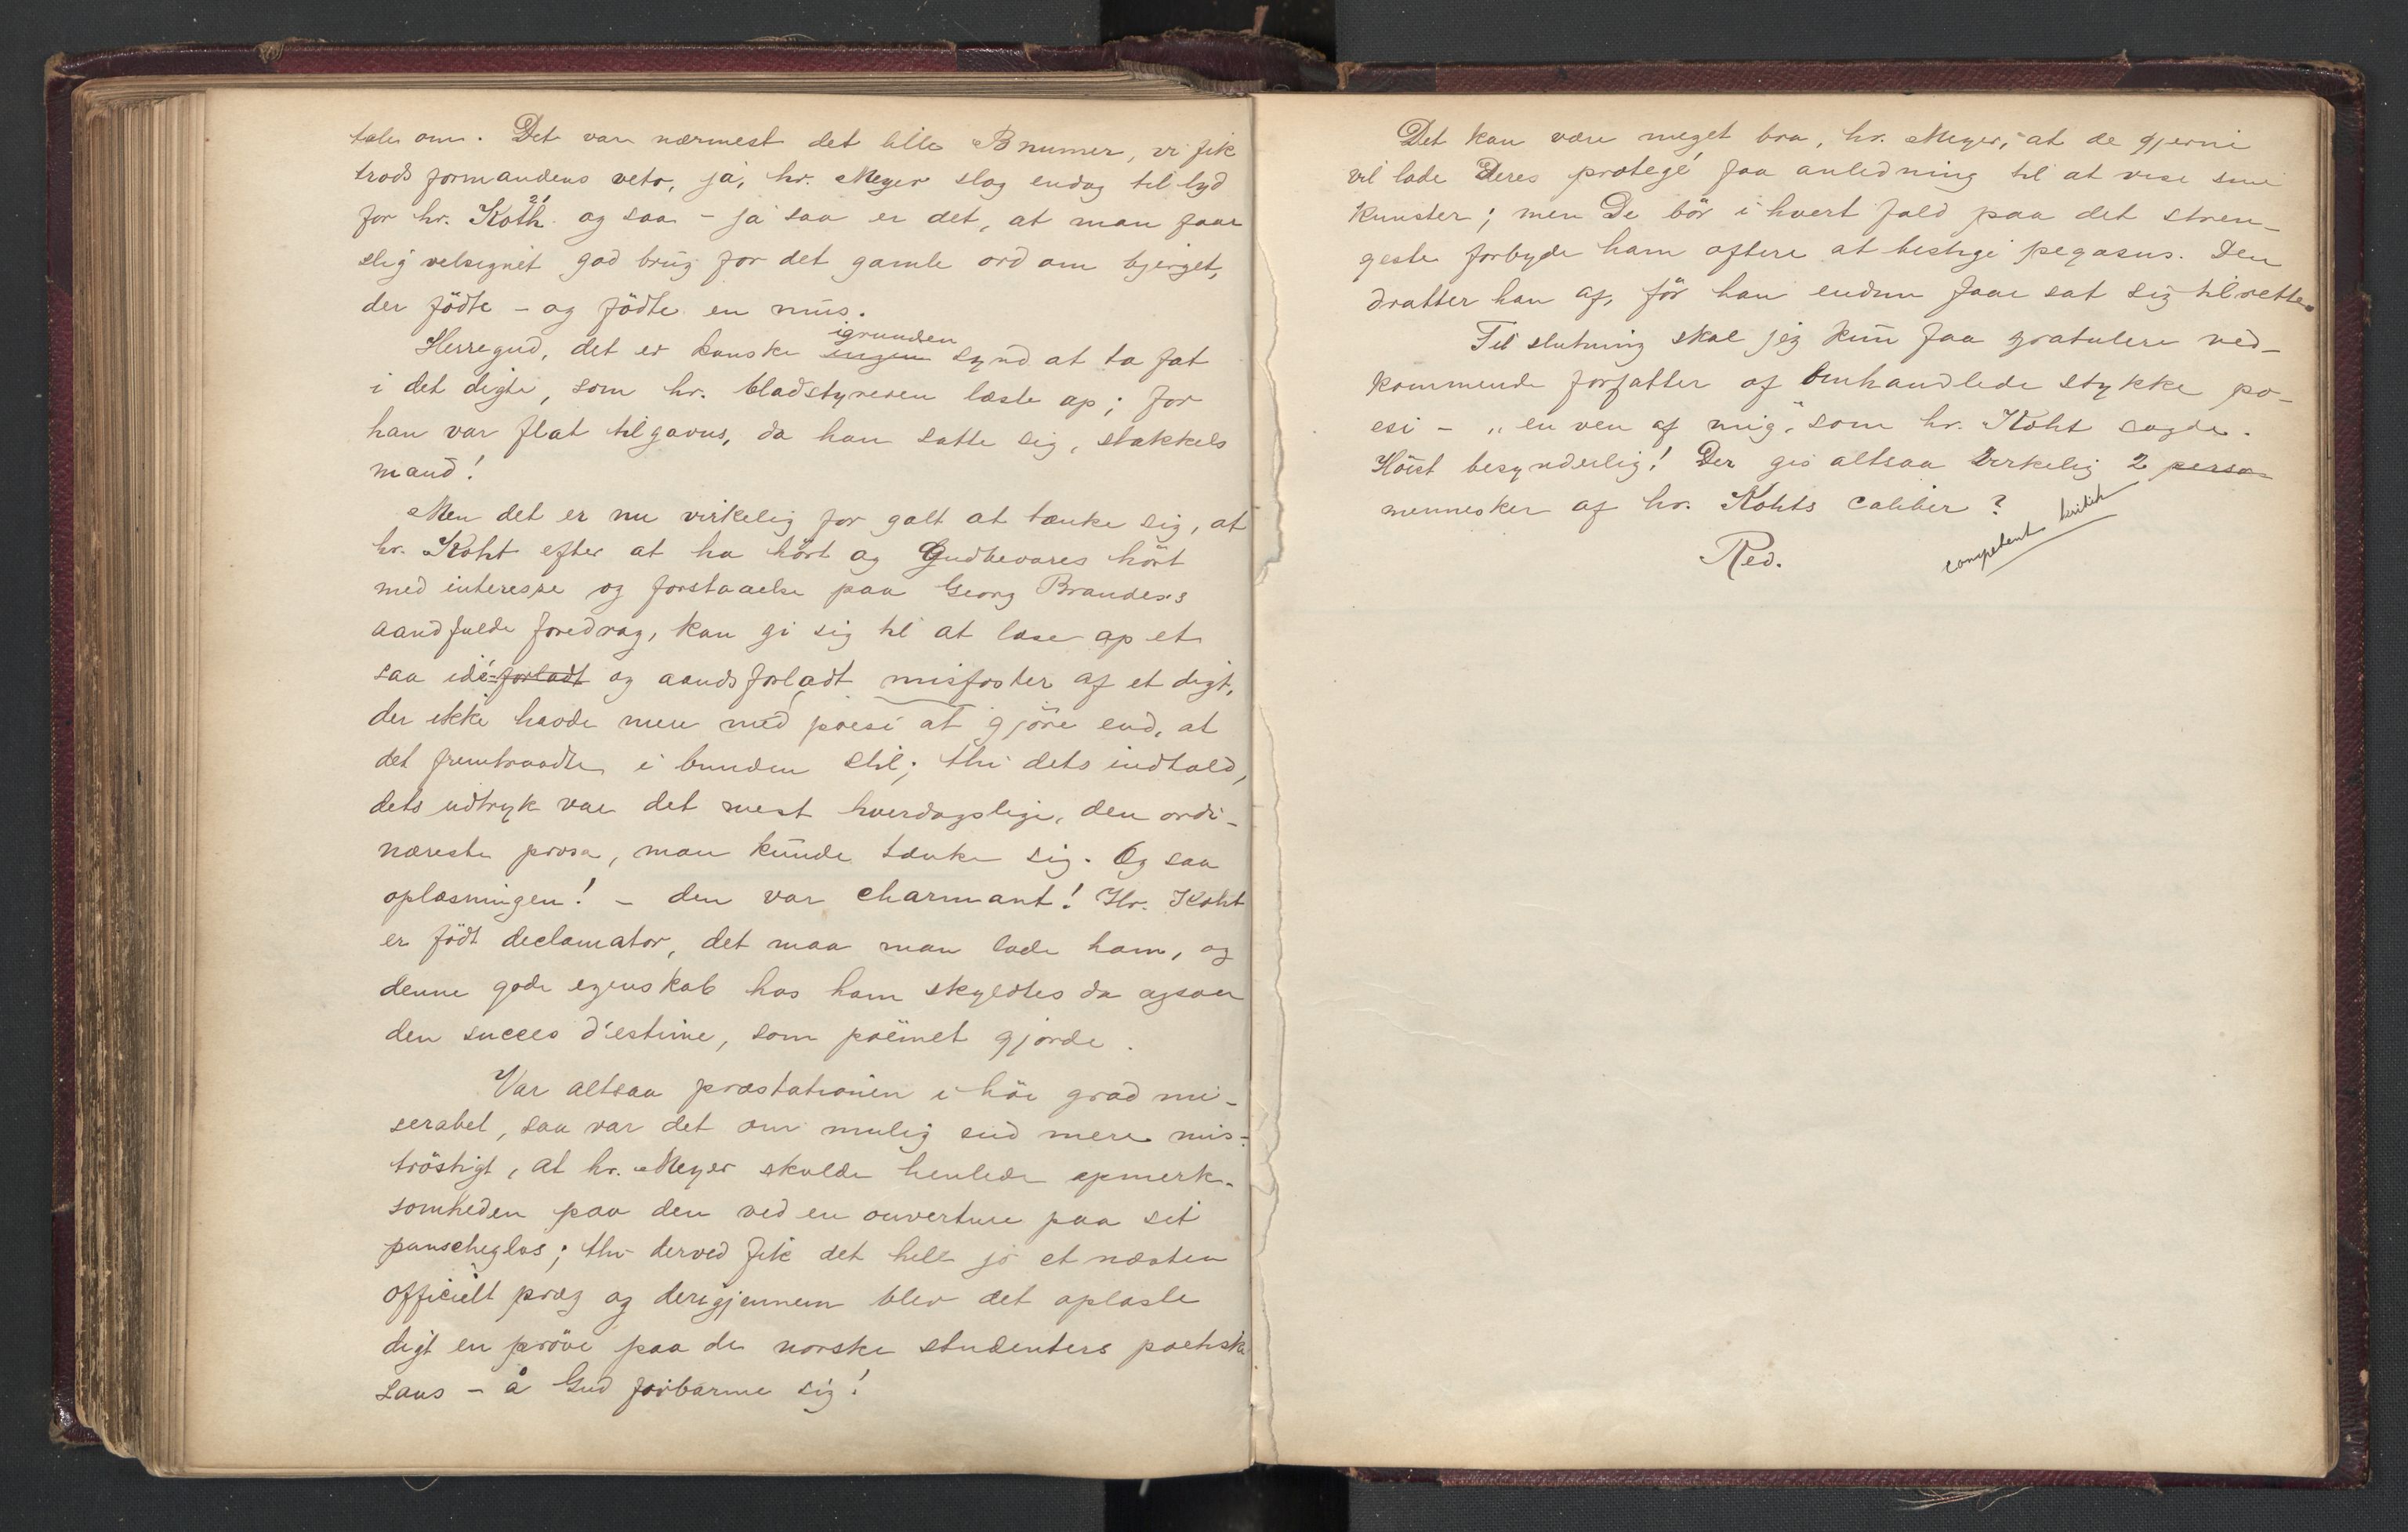 tale om. Det var nærmest det lille B numer, vi fik
trods formandens veto, ja, hr. Meyer slog endog til lyd
for hr. Koth og saa - ja saa er det, at man faar
slig velsignet god brug for det gamle ord om bjerget,
der födte - og födte en mus.
igrunden
Herregud, det er kanske ingen synd at ta fat
i det digte, som hr. bladstyreren læste op; for
han var flat tilgavns, da han satte sig, stakkels
mand!
Men det er nu virkelig for galt at tænke sig, at
hr. Koht efter at ha hört og Gudbevares hört
med interesse og forstaaelse paa Georg Brandes's
aandfulde foredrag, kan gi sig til at læse op et
saa idé-forladt og aandsforladt misfoster af et digt,
der ikke havde mere med poesi at gjöre end, at
det fremtraadte i bunden stil; thi dets indhold,
dets udtryk var det mest hverdagslige, den ordi-
næreste prosa, man kunde tænke sig. Og saa
oplæsningen! - den var charmant! Hr. Koht
er födt declamator, det maa man lade ham, og
denne gode egenskab hos ham skyldtes da ogsaa
den succes d'estime, som poëmet gjorde.
Var altsaa præstationen i höi grad mi-
serabel, saa var det om mulig end mere mis-
tröstigt, at hr. Meyer skulde henlede opmerk-
somheden paa den ved en ouverture paa sit
punscheglas; thi derved fik det hele jo et næsten
officielt præg og derigjennem blev det oplæste
digt en pröve paa de norske studenters poetiske
sans - å Gud forbarme sig!
Det kan være meget bra, hr. Meyer, at de gjerne
vil lade Deres protegé faa anledning til at vise sine
kunster; men De bör i hvert fald paa det stren-
geste forbyde ham oftere at bestige pegasus. Den
dratter han af, för han endnu faar sat sig tilrette.
Til slutning skal jeg kun faa gratulere ved-
kommende forfatter af omhandlede stykke po-
esi - „en ven af mig", som hr. Koht sagde.
Höist besynderlig! Der gis altsaa virkelig 2 perso
mennesker af hr. Kohts caliber?
Red.
competent kritik